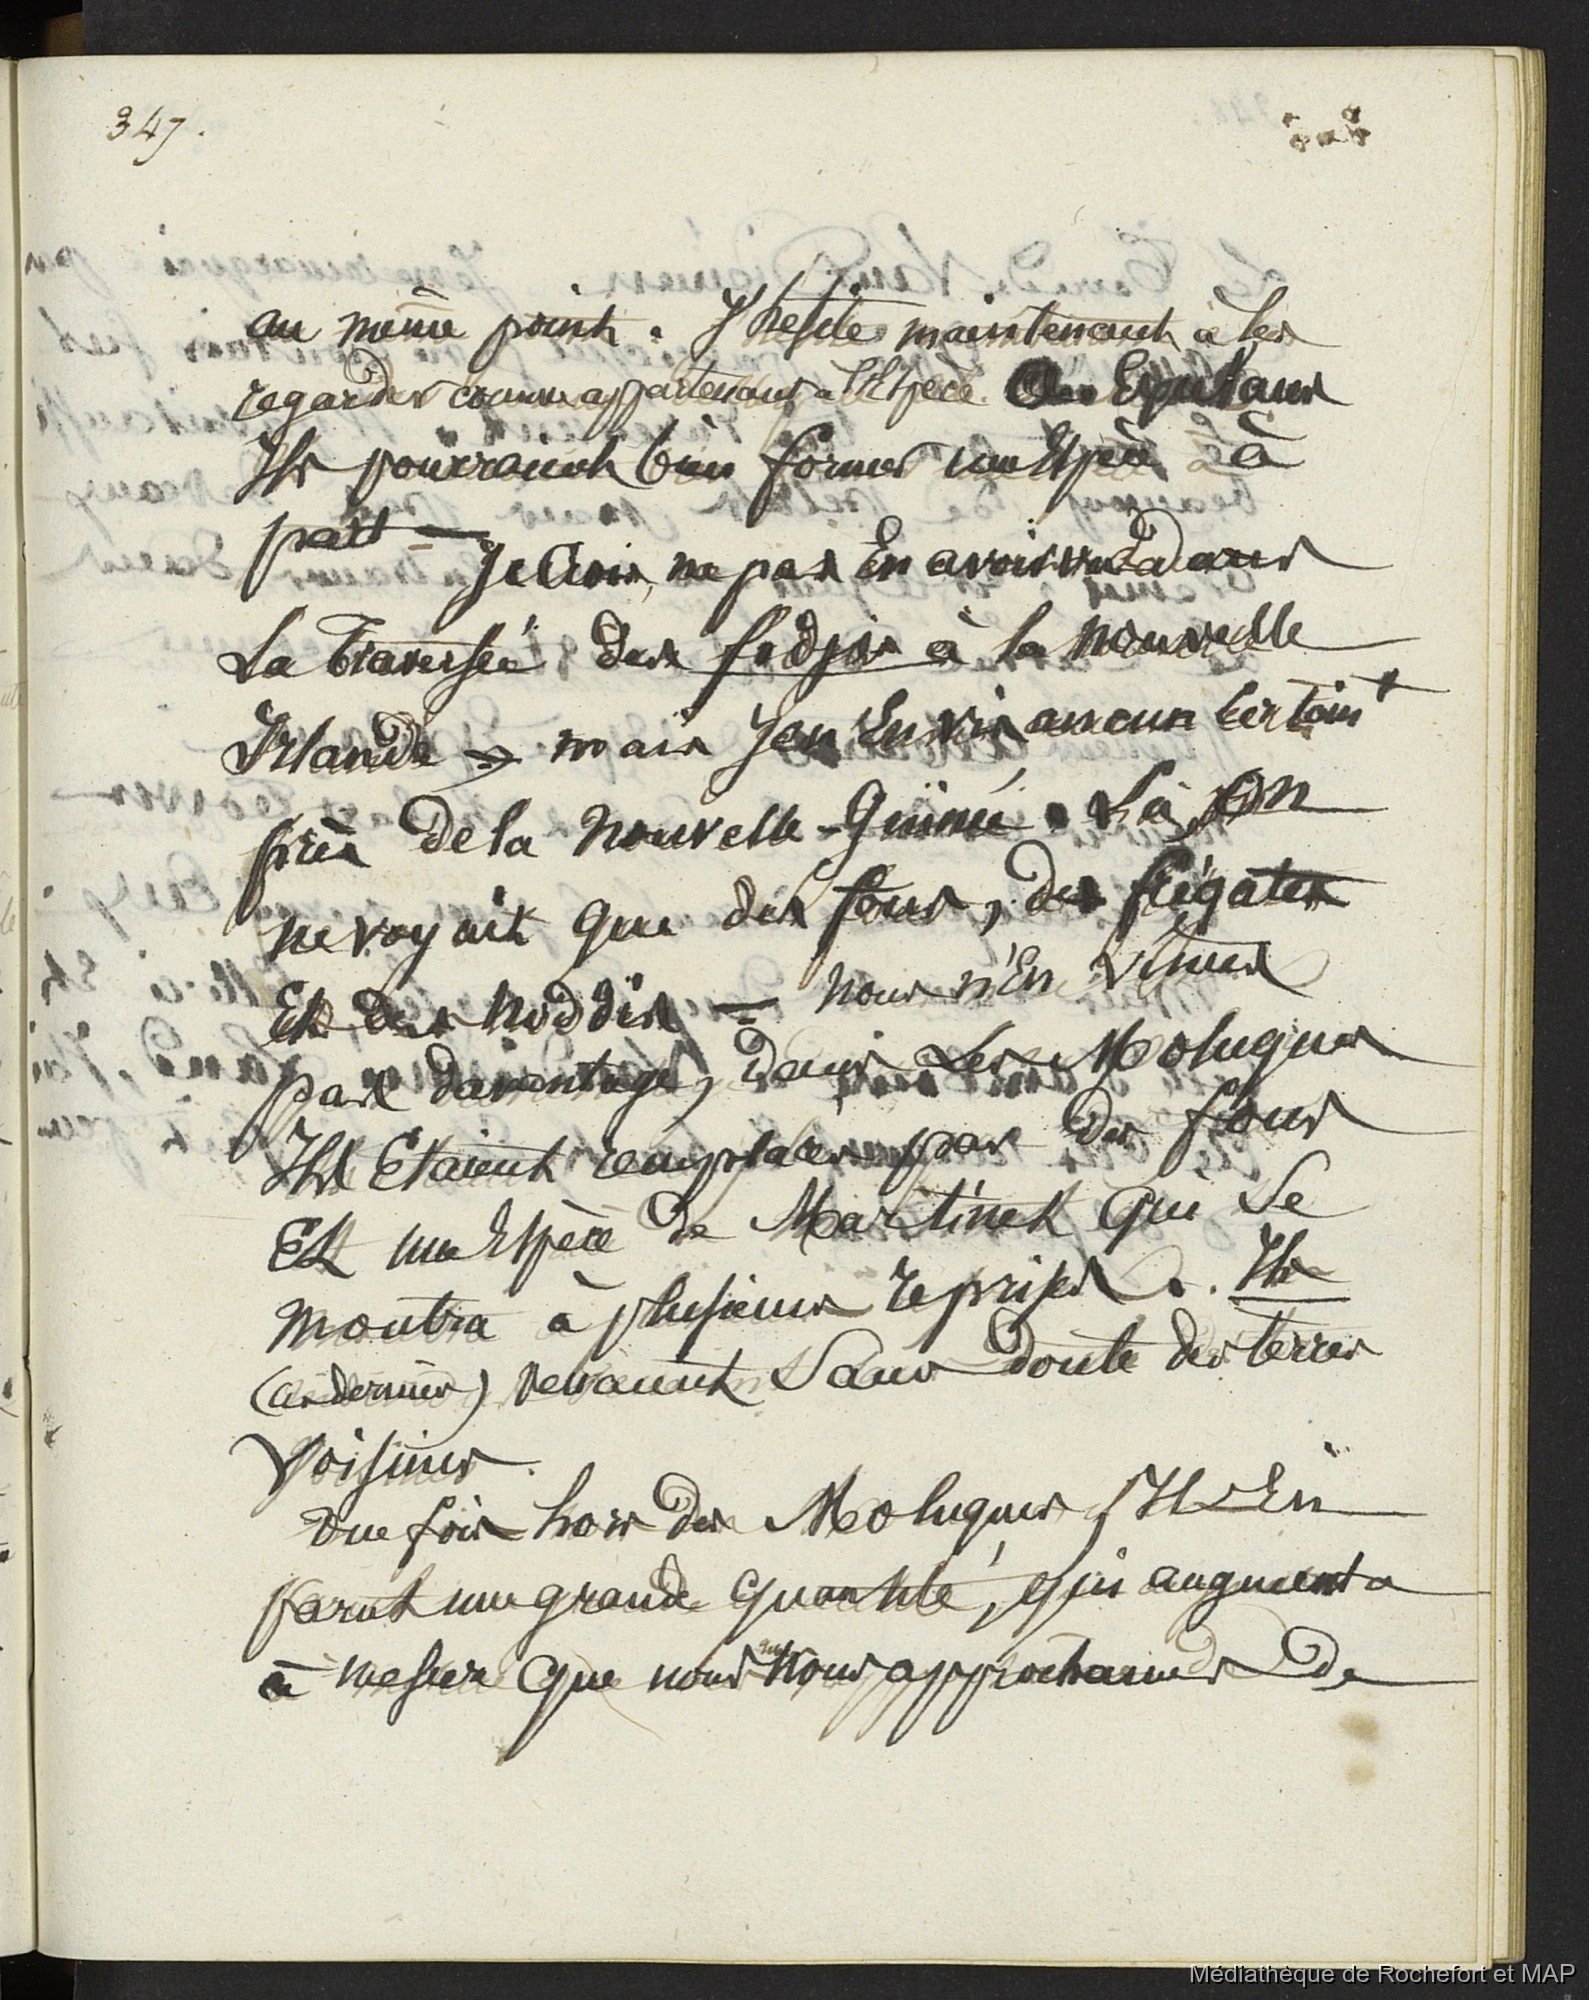 347.
au même point. J'hesite maintenant à les
regarder comme appartenant à l'Espece
Ils pourraient bien former une Espèce à
part — Je Crois, ne pas En avoir vu dans
La Traversée des fidjis à la Nouvelle
Irlande — mais J'en En vis aucun Certain^t
près de la Nouvelle-Guinée. Là on
ne voyait que des fous, des frégates
Et des Noddis — nous n'En vimes
pas davantage, dans Les Moluques
Ils Etaient remplacés par des fous
Et une Espèce de Martinet qui Se
montra à plusieurs reprises. Ils
(ces derniers) venaient Sans doute des terres
Voisines.
une fois hors des Moluques, Il En
parut une grande quantité, qui augmenta
à mesure que nous nous approchames de
Médiathèque de Rochefort et MAP